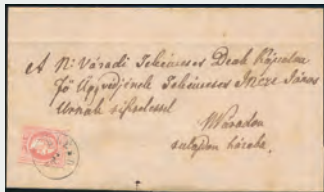 A N: Váradi Tekintetes Deák Káptalan
Fő Ügyvédjének Tekintetes Incze János
Urnak tisztelettel
N Váradon
tulajdon házába.